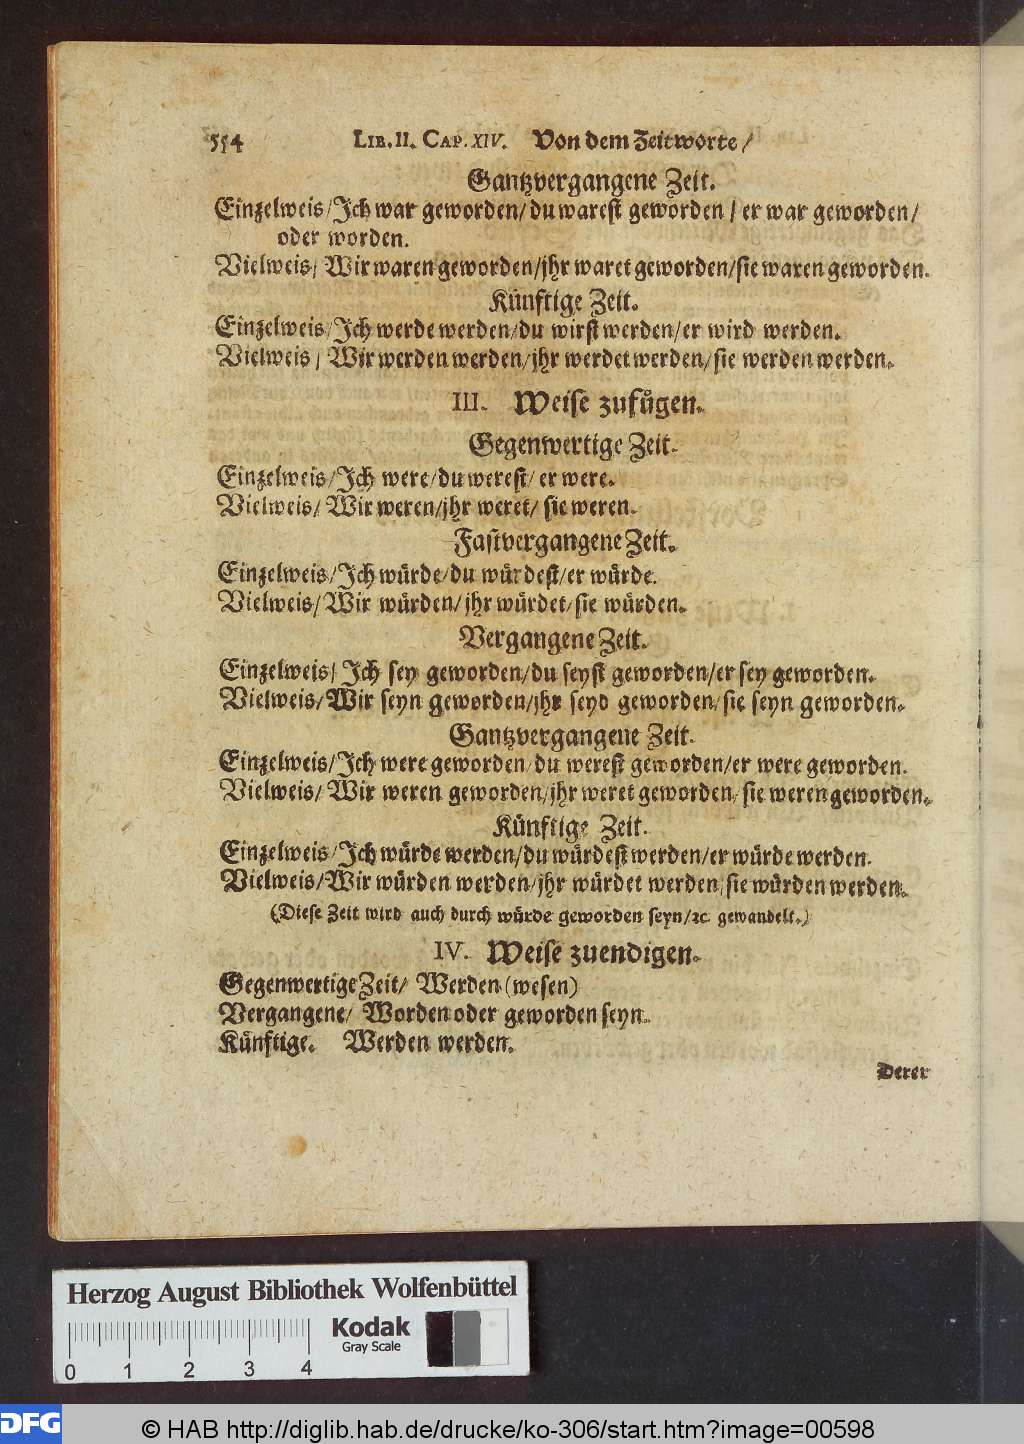 554 LIB. II. CAP. XIV. Von dem Zeitworte /
Gantzvergangene Zeit.
Einzelweis / Jch war geworden / du warest geworden / er war geworden /
oder worden.
Vielweis / Wir waren geworden / jhr waret geworden / sie waren geworden.
Künftige Zeit.
Einzelweis / Jch werde werden / du wirst werden / er wird werden.
Vielweis / Wir werden werden / jhr werdet werden / sie werden werden.
III. Weise zufügen.
Gegenwertige Zeit.
Einzelweis / Jch were / du werest / er were.
Vielweis / Wir weren / jhr weret / sie weren.
Fastvergangene Zeit.
Einzelweis / Jch würde / du würdest / er würde.
Vielweis / Wir würden / jhr würdet / sie würden.
Vergangene Zeit.
Einzelweis / Jch sey geworden / du seyst geworden / er sey geworden.
Vielweis / Wir seyn geworden / jhr seyd geworden / sie seyn geworden.
Gantzvergangene Zeit.
Einzelweis / Jch were geworden / du werest geworden / er were geworden.
Vielweis / Wir weren geworden / jhr weret geworden / sie weren geworden.
Künftige Zeit.
Einzelweis / Jch würde werden / du würdest werden / er würde werden.
Vielweis / Wir würden werden / jhr würdet werden / sie würden werden.
(Diese Zeit wird auch durch würde geworden seyn / ꝛc. gewandelt.)
IV. Weise zuendigen.
Gegenwertige Zeit / Werden (wesen)
Vergangene / Worden oder geworden seyn.
Künftige. Werden werden.
Derer
Herzog August Bibliothek Wolfenbüttel
Kodak
Gray Scale
0 1 2 3 4
DFG
© HAB http://diglib.hab.de/drucke/ko-306/start.htm?image=00598